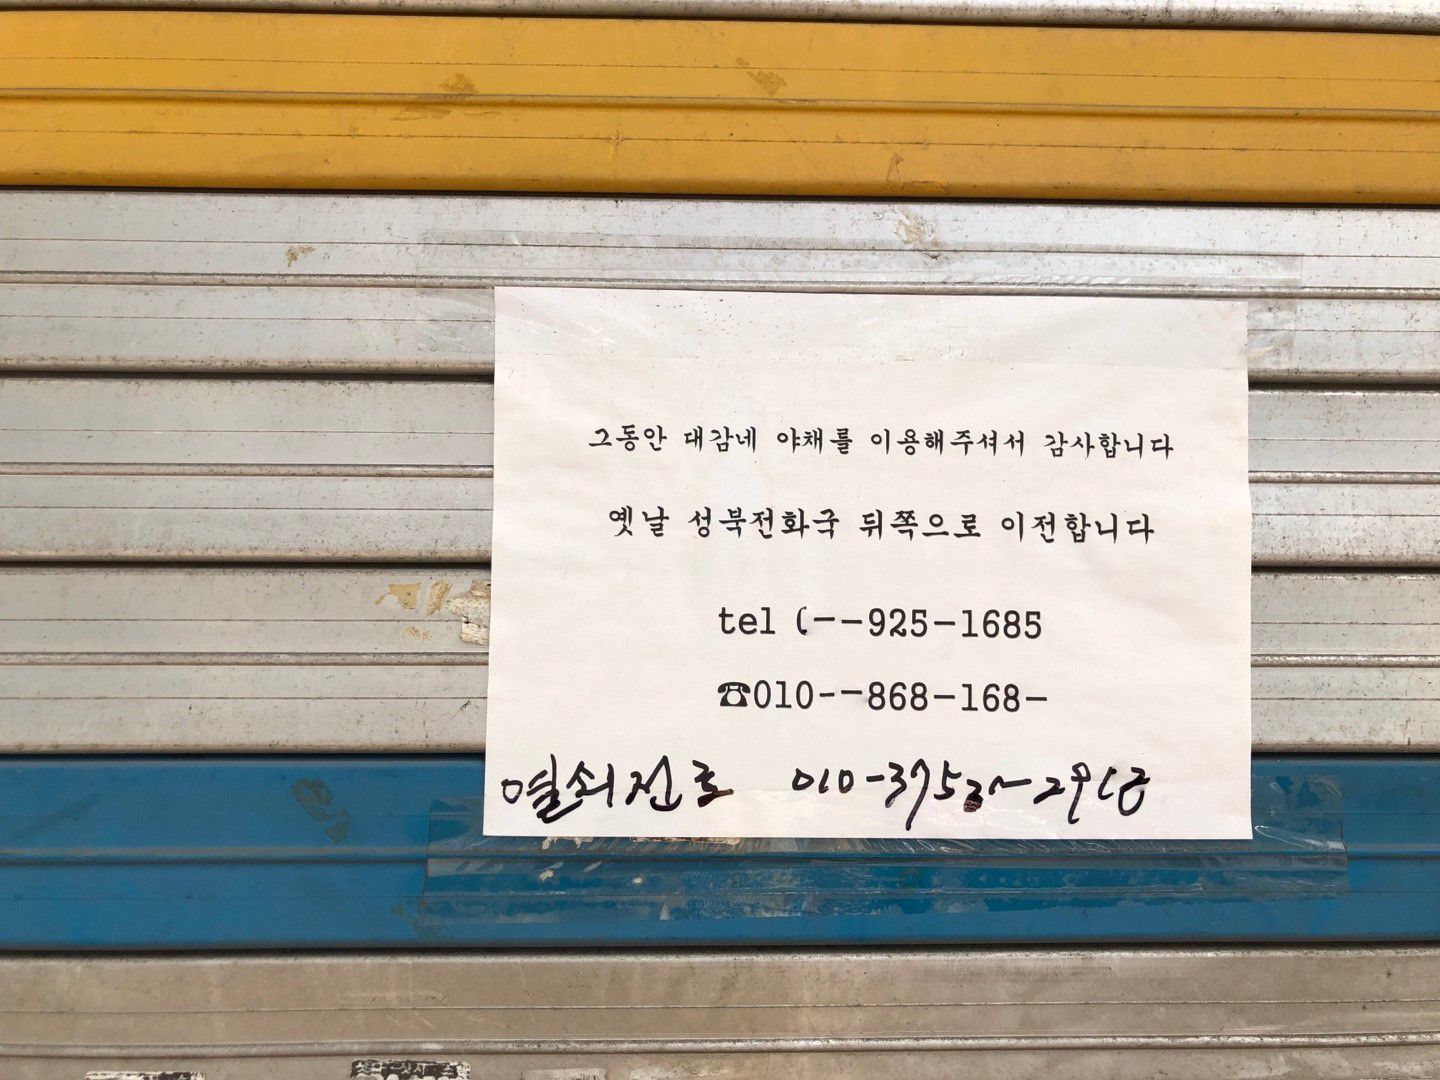 그동안 대감네 야채를 이용해주셔서 감사합니다
옛날 성북전화국 뒤쪽으로 이전합니다
tel (--925-1685
☎010--868-168-
열쇠전호